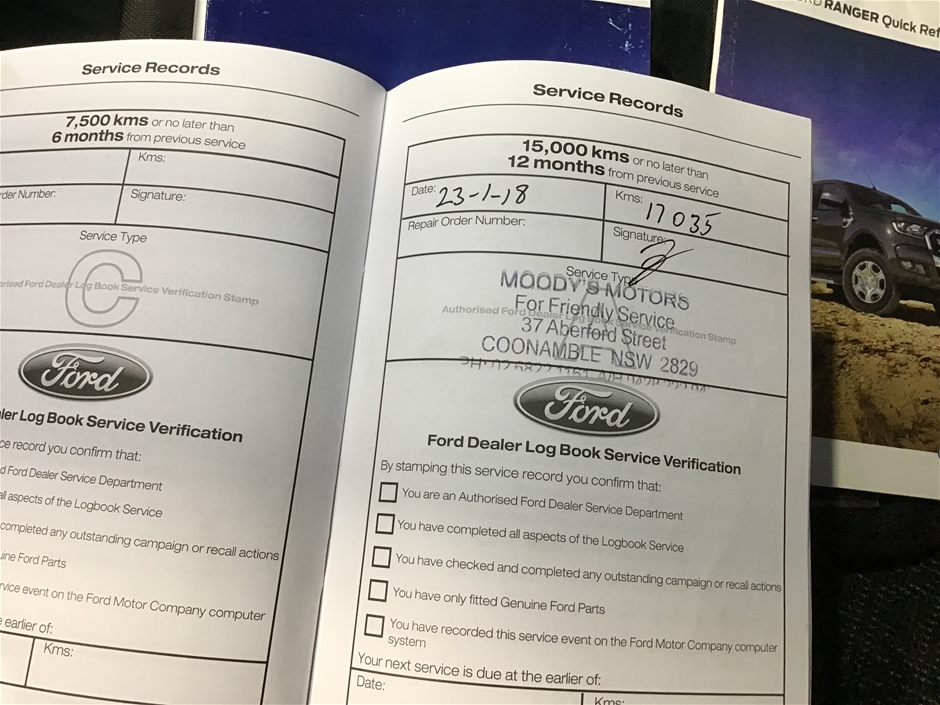 RANGER Quick Ref
Service Records
7,500 kms or no later than
6 months from previous service
Kms:
der Number:
Signature:
Service Type
C
orised Ford Dealer Log Book Service Verification Stamp
Ford
ler Log Book Service Verification
ce record you confirm that:
d Ford Dealer Service Department
all aspects of the Logbook Service
completed any outstanding campaign or recall actions
uine Ford Parts
rvice event on the Ford Motor Company computer
e earlier of:
Kms:
Service Records
15,000 kms or no later than
12 months from previous service
Date: 23-1-18
Kms: 17035
Repair Order Number:
Signature:
Service Type
MOODY'S MOTORS
For Friendly Service
Authorised Ford Dealer Log Book Service Verification Stamp
37 Aberford Street
COONAMBLE NSW 2829
Ford
Ford Dealer Log Book Service Verification
By stamping this service record you confirm that:
You are an Authorised Ford Dealer Service Department
You have completed all aspects of the Logbook Service
You have checked and completed any outstanding campaign or recall actions
You have only fitted Genuine Ford Parts
You have recorded this service event on the Ford Motor Company computer
system
Your next service is due at the earlier of:
Date:
Kms: